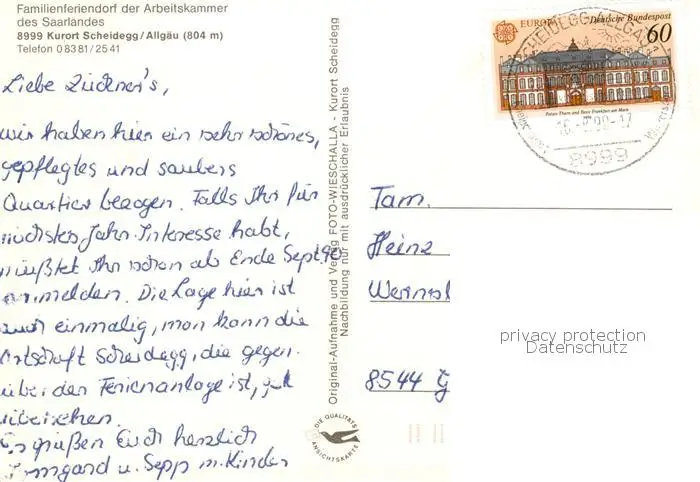 Familienferiendorf der Arbeitskammer
des Saarlandes
8999 Kurort Scheidegg/Allgäu (804 m)
Telefon 0 83 81 / 25 41
Liebe Zückner's,
wir haben hier ein sehr schönes,
gepflegtes und saubers
Quartier bezogen. Falls Ihr für
nächstes Jahr Interesse habt,
müßtet Ihr schon ab Ende Sept. 90
anmelden. Die Lage hier ist
auch einmalig, man kann die
Ortschaft Scheidegg, die gegen-
über der Ferienanlage ist, gut
Es grüßen Euch herzlich
Irmgard u. Sepp m. Kinder
Original-Aufnahme und Verlag FOTO-WIESCHALLA - Kurort Scheidegg
Nachbildung nur mit ausdrücklicher Erlaubnis
DIE QUALITÄTS
ANSICHTSKARTE
EUROPA
Deutsche Bundespost
60
Palais Thurn und Taxis Frankfurt am Main
SCHEIDEGG, ALLGÄU
90-17
8999
Fam.
Heinz
8544 G
privacy protection
Datenschutz